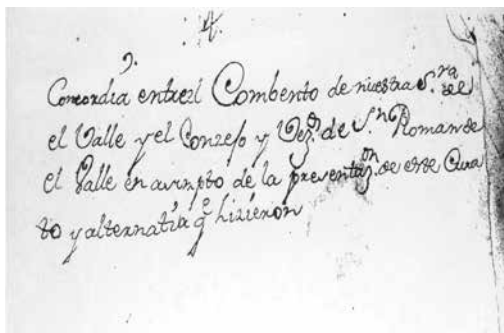 Concordia entre el Combento de nuestra S.ra de
el Valle y el Conzejo y Vez.s de S.n Roman de
el Valle en asumpto de la presentaz.on de este Cura
to y alternatiʋa q.e hizieron